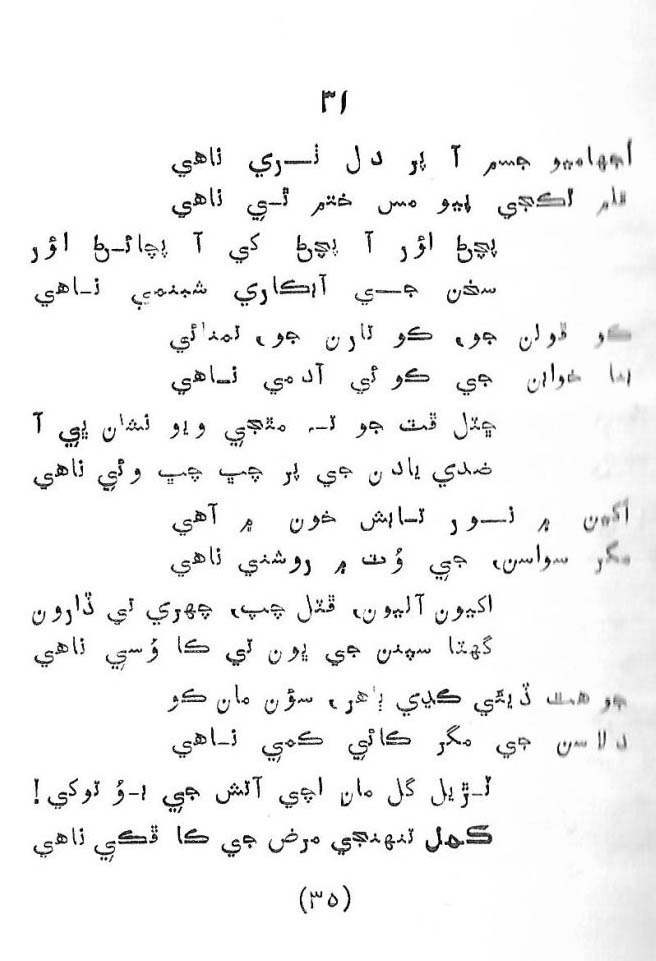 ٣١
اُجهاميو جسم آ پر دل ٺري ناهي
قلم ڀڪجي پيو مس ختم ٿي ناهي
پڇڻ اؤر آ پڇڻ کي آ پچائڻ اؤر
سخن جي آبڪاري شبنمي ناهي
ڪو ڦولن جو، ڪو تارن جو، تمنائي
بنا خوابن جي ڪوئي آدمي ناهي
ڇتل ڦٽ جو تہ مٽجي ويو نشان ڀي آ
ضدي يادن جي پر چپ چپ وئي ناهي
اکين ۾ نور تابش خون ۾ آهي
مگر سواسن، جي وُٽ ۾ روشني ناهي
اکيون آليون، ڦٽل چپ، چهري تي ڏارون
گهٽا سپنن جي ڀون تي ڪا وُسي ناهي
جو هٿ ڏيئي ڪڍي ٻاهر، سؤن مان ڪو
دلاسن جي مگر ڪائي ڪمي ناهي
ٽڙيل گل مان اچي آتش جي بوُ توکي!
ڪمل تنهنجي مرض جي ڪا ڦڪي ناهي
(٣٥)